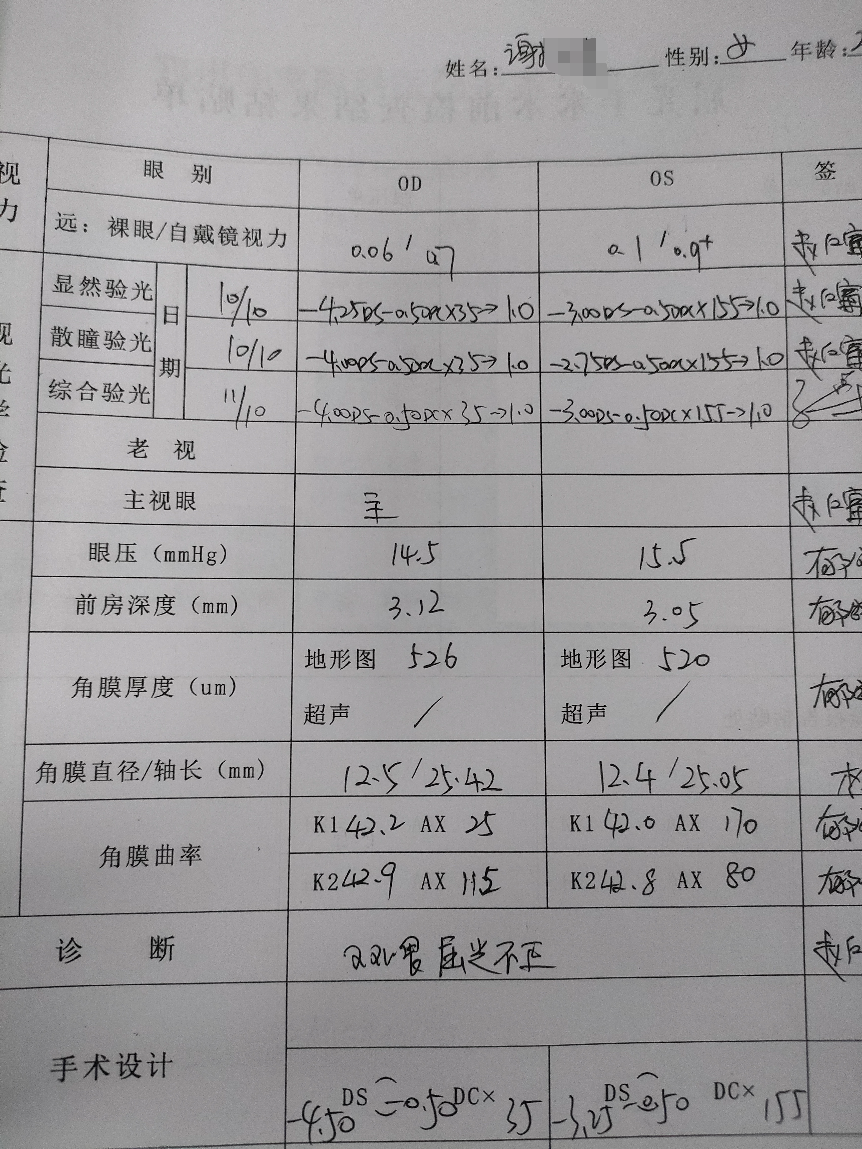 姓名: 谢 性别: 女 年龄:
视力 眼 别 OD OS 签
远: 裸眼/自戴镜视力 0.06 / 0.7 0.1 / 0.9+
显然验光 日期 10/10 -4.25DS-0.50DC×35→1.0 -3.00DS-0.50DC×155→1.0
散瞳验光 10/10 -4.00DS-0.50DC×35→1.0 -2.75DS-0.50DC×155→1.0
综合验光 11/10 -4.00DS-0.50DC×35→1.0 -3.00DS-0.50DC×155→1.0
老 视
主视眼 主
眼压 (mmHg) 14.5 15.5
前房深度 (mm) 3.12 3.05
角膜厚度 (um) 地形图 526 地形图 520
超声 / 超声 /
角膜直径/轴长 (mm) 12.5/25.42 12.4/25.05
角膜曲率 K1 42.2 AX 25 K1 42.0 AX 170
K2 42.9 AX 115 K2 42.8 AX 80
诊 断 屈光不正
手术设计
-4.50 DS -0.50 DC× 35 -3.25 DS -0.50 DC× 155